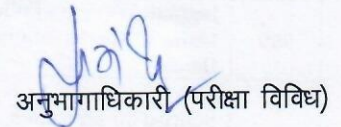 अनुभागाधिकारी (परीक्षा विविध)